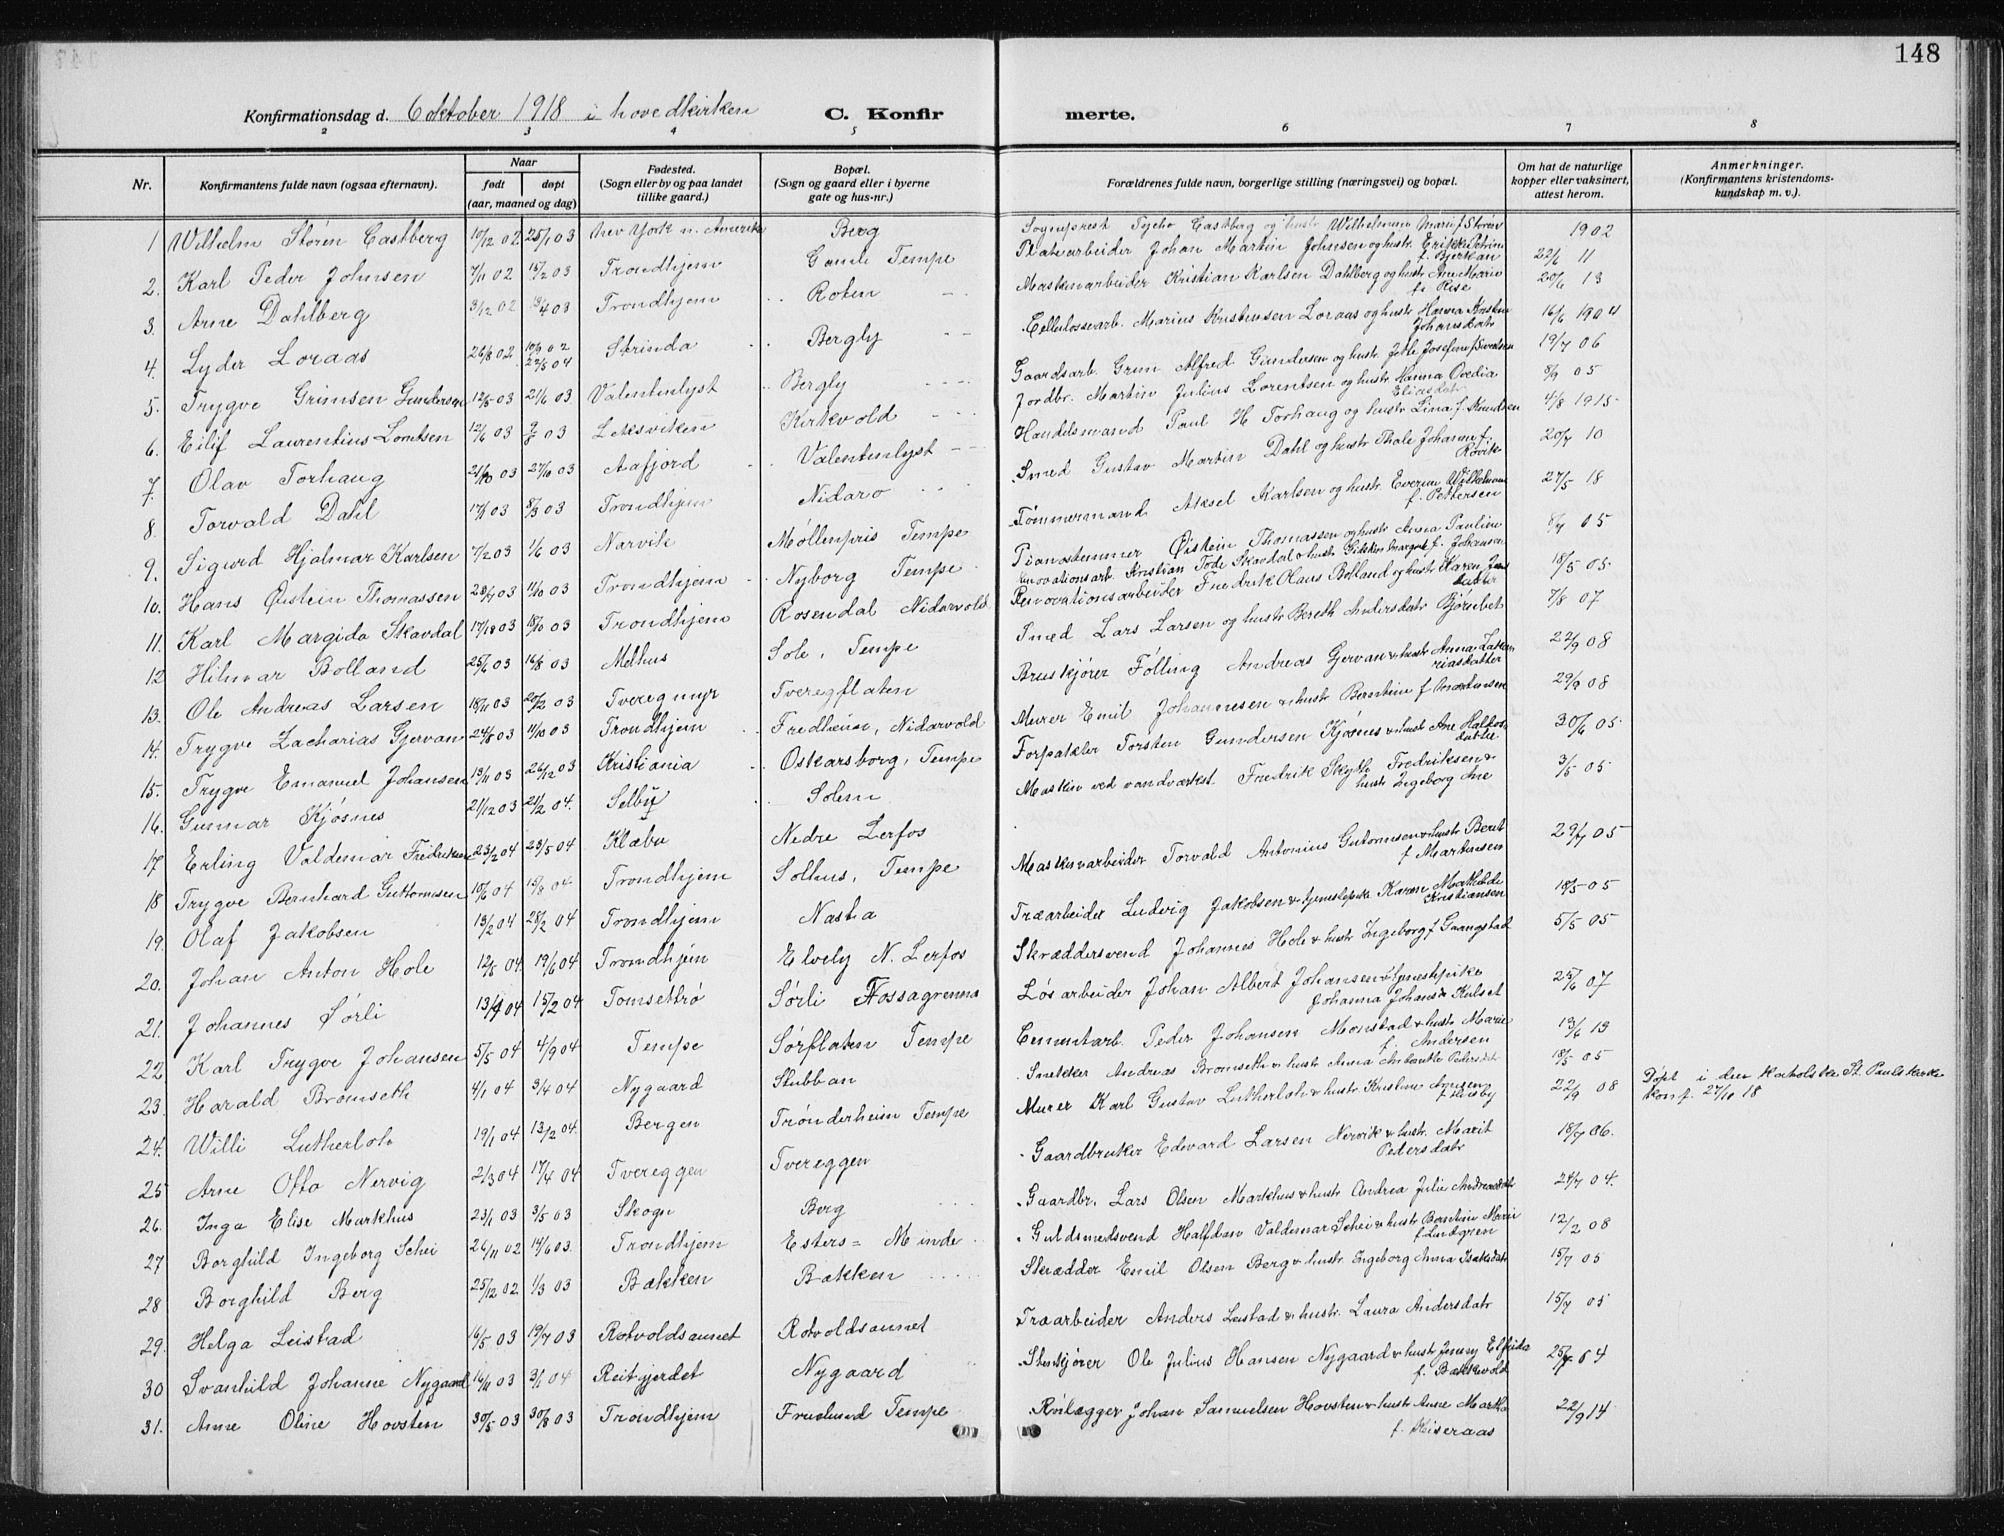 148
Konfirmationsdag d. 6 oktober 1918 i hovedkirken C. Konfirmerte.
2 3 4 5 6 7 8
Nr. Konfirmantens fulde navn (ogsaa efternavn). Naar født døpt (aar, maaned og dag) Fødested. (Sogn eller by og paa landet tillike gaard.) Bopæl. (Sogn og gaard eller i byerne gate og hus-nr.) Forældrenes fulde navn, borgerlige stilling (næringsvei) og bopæl. Om hat de naturlige kopper eller vaksinert, attest herom. Anmerkninger. (Konfirmantens kristendomskundskap m. v.).
1 Wilhelm Støren Castberg 25/1 03 New York n. Amerika Berg Sogneprest Tycho Castberg og hustr Wilhelmine Marie f Støren 1902
2. Karl Peder Johnsen 7/11 02 15/2 03 Trondhjem Gamle Tempe Platearbeider Johan Martin Johnsen og hustr Erikke Petrine f. Bjerkan 22/6 11
3. Arne Dahlberg 3/12 02 13/4 03 Trondhjem Roten Maskinarbeider Kristian Karlsen Dahlberg og hustr Ane Marie f. Rise 20/6 13
4. Lyder Loraas 26/8 02 10/9 02 22/5 04 Strinda Bergly Cellulossearb. Marius Kristensen Loraas og hustr Hanna Kristine Johansdatr 16/6 1904
5. Trygve Grimsen Gundersen 12/5 03 21/6 03 Valentinlyst Bergly Gaardsarb. Alfred Gundersen og hustr Josefine f Svendsen 19/7 06
6. Eilif Laurentius Lorntsen 12/6 03 03 Leksviken Kirkvold Jordbr. Martin Julius Lorentsen og hustr Hanna Ovedia Eliasdatr 8/9 05
7. Olav Torhaug 21/10 03 27/10 03 Aafjord Valentinlyst Handelsmand Paul H Torhaug og hustr Lina f. Knudsen 4/8 1915
8. Torvald Dahl 03 8/3 03 Trondhjem Nidaro Smed Gustav Martin Dahl og hustr Thale Johanne f. Røvik 20/7 10
9. Sigurd Hjalmar Karlsen 7/2 03 1/6 03 Narvik Møllenpris Tempe Tømmermand Aksel Karlsen og hustr Evenine Wilhelmine f. Pettersen 27/5 18
10. Hans Øistein Thomassen 03 11/10 03 Trondhjem Nyborg Tempe Pianostemmer Øistein Thomassen og hustr Anna Pauline f. Johansen 8/7 05
11. Karl Margido Skavdal 03 18/10 03 Trondhjem Rosendal Nidarvold Renovationsarb. Kristian Tode Skavdal & hustr 18/5 05
12 Hilmar Bolland 25/6 03 16/8 03 Melhus Sole, Tempe Renovationsarbeider Fredrik Olaus Bolland og hustr Karen Jensdatter 7/8 07
13. Ole Andreas Larsen 18/11 03 20/2 03 Tveregmyr Tveregflaten Smed Lars Larsen og hustr Bereth Andersdatr Bjørsbet 22/9 08
14. Trygve Zacharias Gjervan 24/8 03 11/10 03 Trondhjem Fredheim, Nidarvold Bruskjører Følling Andreas Gjervan & hustr Anna Zakariasdatter 29/9 08
15. Trygve Emanuel Johansen 19/11 03 26/12 03 Kristiania Oskarsborg, Tempe Murer Emil Johannesen & hustr Berntine f Martinsen 30/6 05
16. Gunnar Kjøsnes 21/12 03 21/2 04. Selbu Solem Forpakter Torsten Gundersen Kjøsnes & hustr Ane Halvorsdatter 3/5 05
17 Erling Valdemar Fredriksen 23/2 04 23/5 04 Klæbu Nedre Lerfos Maskin ved vandværket Fredrik Skytte Fredriksen & hustr Ingeborg Ane 29/7 05
18 Trygve Bernhard Guttormsen 10/6 04 15/8 04 Trondhjem Solhus, Tempe Maskinarbeider Torvald Antonius Gutormsen & hustr Berit f Martinsen 18/5 05
19. Olaf Jakobsen 13/2 04 28/2 04 Trondhjem Nasta Træarbeider Ludvig Jakobsen & tjenestepike Karen Mathilde Kristiansen 5/5 05
20. Johan Anton Hole 12/5 04. 19/6 04 Trondhjem Elvely N. Lerfos Skræddersvend Johannes Hole & hustr Ingeborg f Gaangstad
21. Johannes Sørli 04 15/2 04 Tomsettrø Sørli Fossegrenna Løsarbeider Johan Albert Johansen & tjenestepike Johanna Kulset 25/6 07
22 Karl Trygve Johansen 5/5 04 4/9 04 Tempe Sørflaten Tempe Cementarb. Peder Johansen Monstad & hustr Marie f. Andersen 13/6 13
23. Harald Bromseth 4/1 04 3/4 04 Nygaard Stubban Snekker Andreas Bromseth & hustr Anna Pedersdtr 18/5 05
24. Willi Lutherloh 19/1 04 13/2 04. Bergen Trønderheim Tempe Murer Karl Gustav Lutherloh & hustr Kristine f Huseby 22/9 08 Døpt i den katholske St. Paulskirke Konf. 27/10 18
25 Arne Otto Nervig 2/3 04 17/4 04 Tvereggen Tvereggen Gaardbruker Edvard Larsen Nervik & hustr. Marit Pedersdatr 18/7 06.
26. Inga Elise Markhus 23/1 03 3/5 03 Skogn Berg Gaardbr. Lars Olsen Markhus & hustr Andrea Julie Andreasdtr 24/7 04.
27 Borghild Ingeborg Schei 26/11 02 14/6 03. Trondhjem Esters=Minde Guldsmedsvend Halfdan Valdemar Schei & hustr Berntine Marie f Lindgren 12/2 08
28 Borghild Berg 25/12 02 1/3 03 Bækken Bækken Skrædder Emil Olsen Berg & hustr. Ingeborg Anna Isaksdatr 15/7 05
29. Helga Leistad 16/5 03 19/7 03 Rotvoldsaunet Rotvoldsaunet Træarbeider Anders Leistad & hustr. Laura Andersdatr 15/7 05
30 Svanhild Johanne Nygaard 16/11 03 3/1 04 Reitgjerdet Nygaard Stenkjører Ole Julius Hansen Nygaard & hustr Jenny Elfrida f. Bakkevold 25/7 04
31. Anne Oline Hovsten 30/5 03 30/8 03 Trondhjem Fruelund Tempe Rørlægger Johan Samuelsen Hovsten & hustr Anne Martha f. Reiseraas 22/9 14